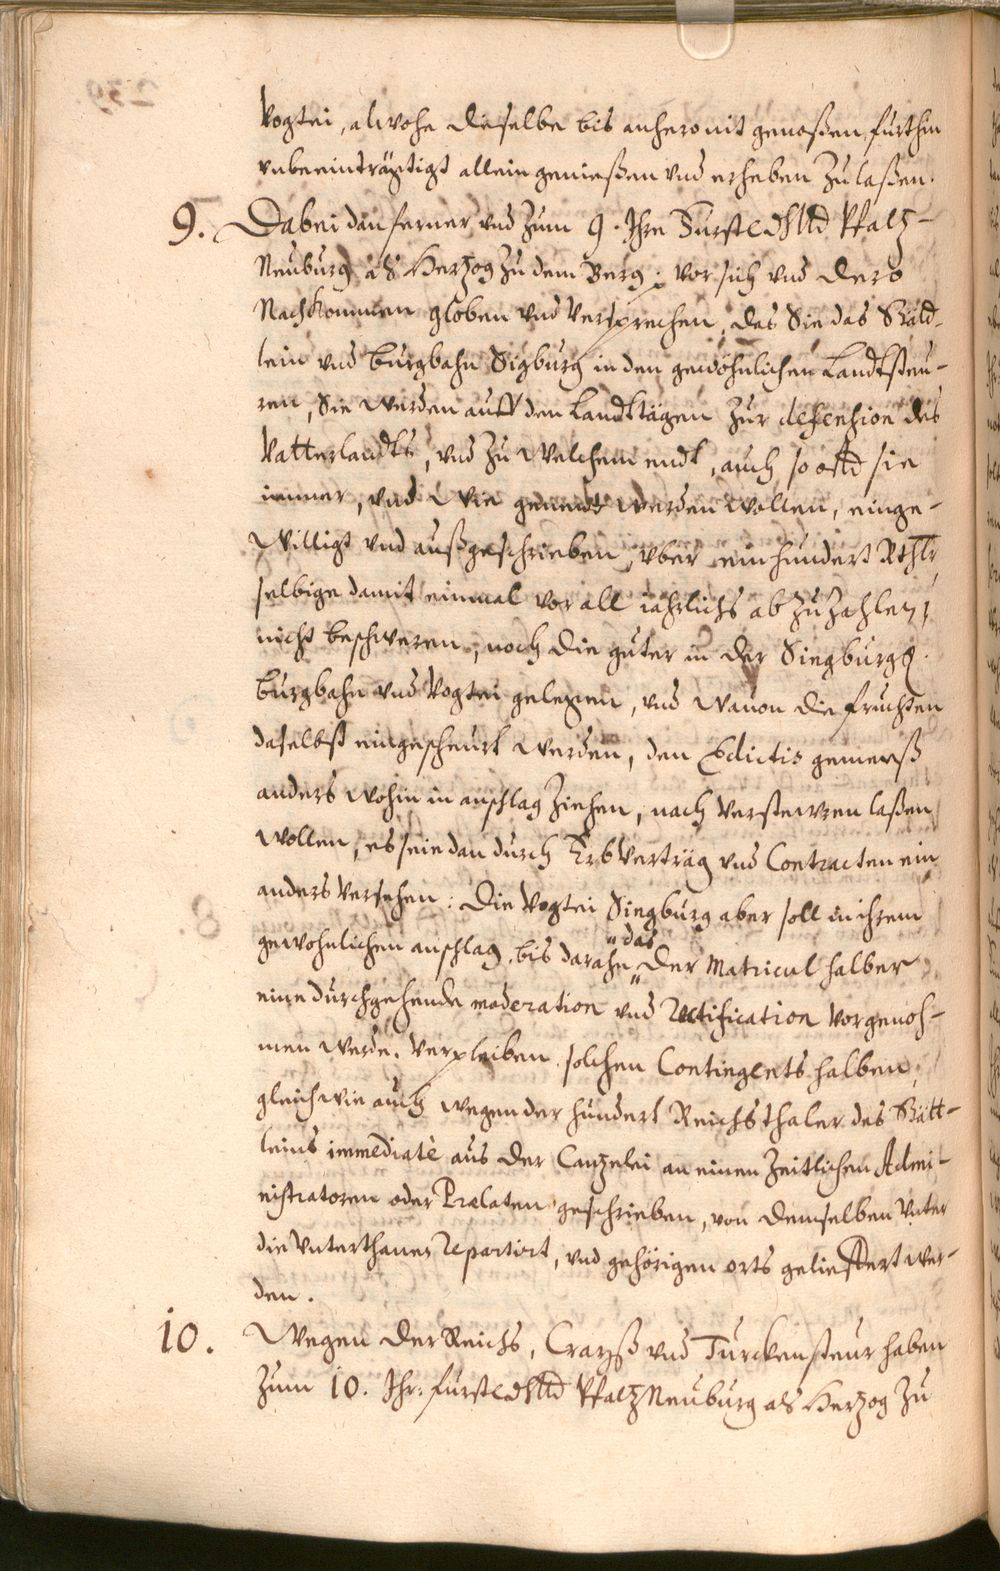 Vogtei, alwohe dieselbe bis anhero mit genoßen, fürthin
vnbeeinträgtigt allein genießen vnd erheben zu laßen.
9. Dabei dan ferner, vnd zum 9. Ihre Fürstl Pfaltz-
Neuburg als Hertzog zu dem Berg: vor sich vnd dero
Nachkommen globen vnd versprechen, das Sie das Stätd-
lein vnd burgbahn Sigburg in den gewöhnlichen Landtsteu-
ren, Sie werden auff den Landttägen zur defension des
Vatterlandts, vnd zu welchem endt, auch so offt sie
immer, vnd wie genendt werden wollen, einge-
williget vnd außgeschrieben, vber ein hundert Rthlr,
selbige damit einmal vor all iahrlichs abzuzahlen,
nicht beschweren, noch die guter in der Siegburg.
burgbahn vnd Vogtei gelegen, vnd wauon die fruchten
daselbst eingescheurt werden, den Edictis gemeeß
anders wohin in anschlag ziehen, noch versteuren laßen
wollen, es seie dan durch Erbverträg vnd Contracten ein
anders versehen: Die Vogtei Siegburg aber soll in ihrem
gewohnlichen anschlag, bis darahn das der Matricul halber
eine durchgehende moderation vnd Rectification vorgenoh-
men werde, verpleiben, solchen Contingents halben,
gleich wie auch wegen der hundert Reichsthaler des Stätt-
leins immediatè aus der Cantzelei an einen zeitlichen Admi-
nistratoren oder Prælaten geschrieben, von demselben vnter
die Vnterthanen repartirt, vnd gehörigen orts gelieffert wer-
den.
10. Wegen der Reichs, Crayß vnd Türckensteur haben
zum 10. Ihr: fürstl Pfaltz Neuburg als Hertzog zu